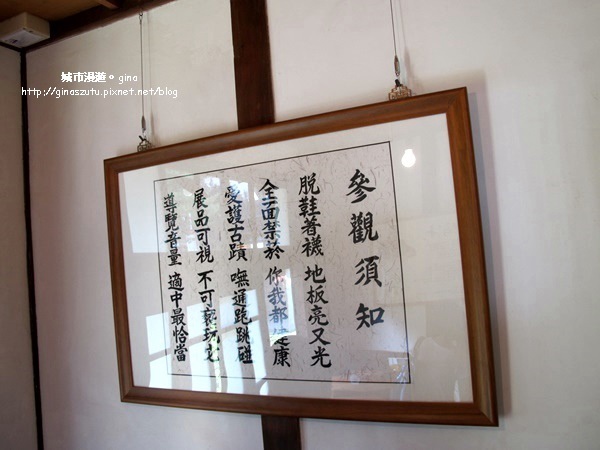 城市漫遊。gina
http://ginaszutu.pixnet.net/blog
參觀須知
脫鞋着襪 地板亮又光
全面禁菸 你我都健康
愛護古蹟 嘸通跑跳碰
展品可視 不可褻玩之
導覽音量 適中最恰當